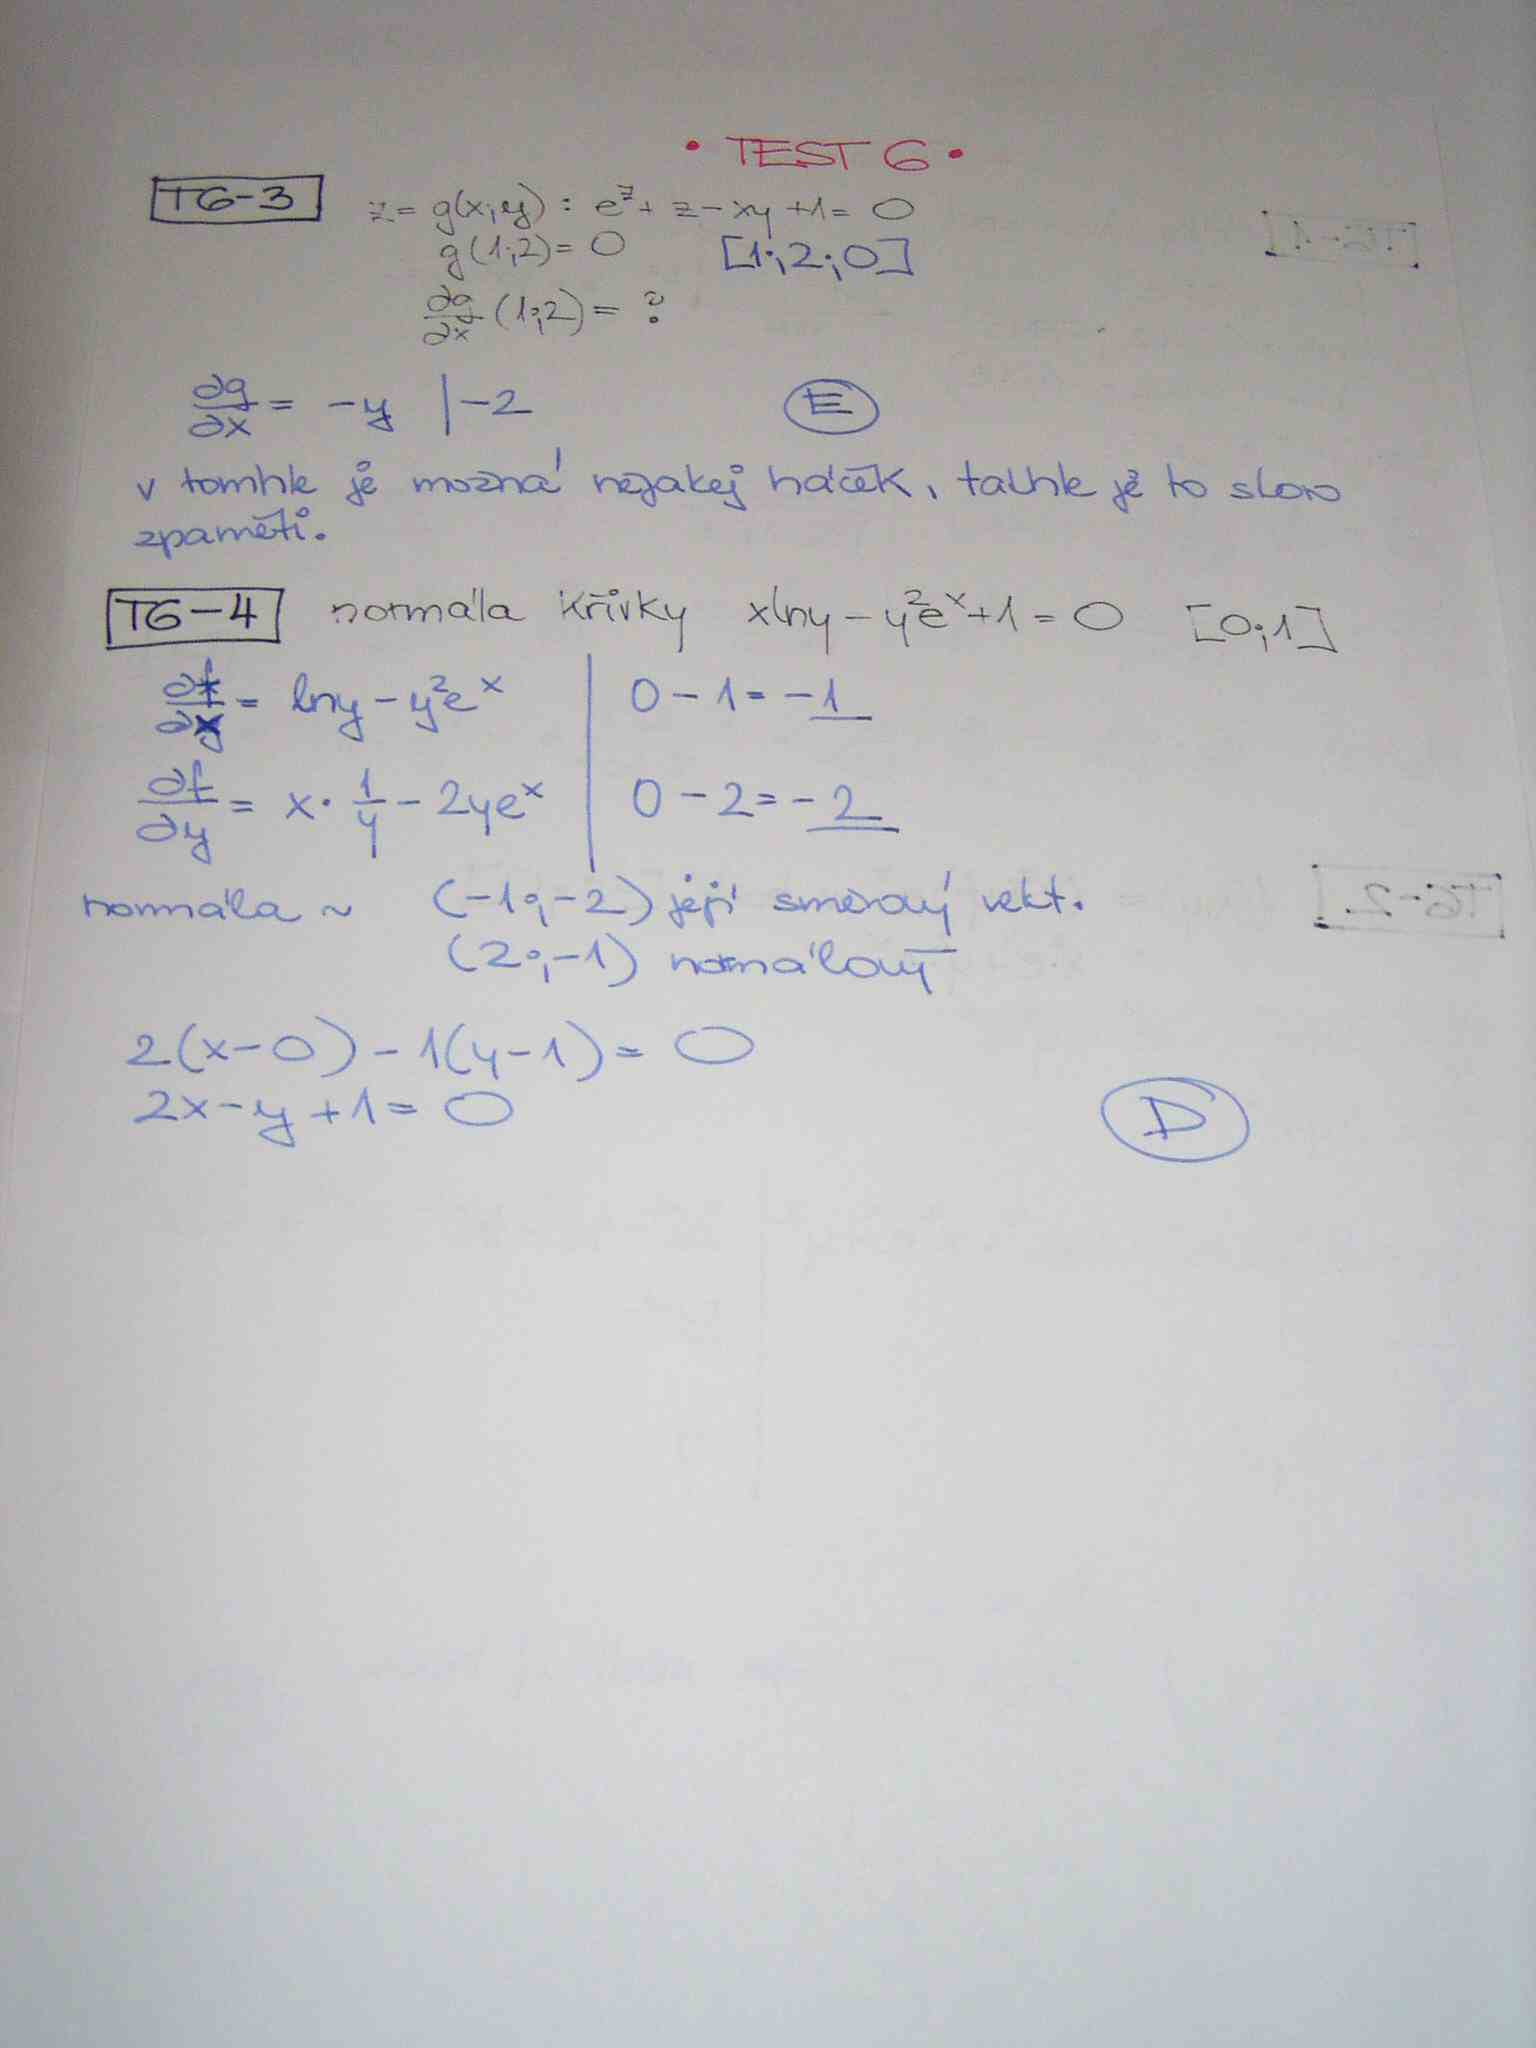 • TEST 6 •
T6-3 z = g(x;y) : e^z + z - xy + 1 = 0
g(1;2) = 0 [1;2;0]
∂g/∂x (1;2) = ?
∂g/∂x = -y | -2 E
v tomhle je možná nějakej háček, takhle je to slovo
zpaměti.
T6-4 normála křivky xlny - y²e^x + 1 = 0 [0;1]
∂f/∂x = lny - y²e^x | 0 - 1 = -1
∂f/∂y = x · 1/y - 2ye^x | 0 - 2 = -2
normála ~ (-1;-2) její směrový vekt.
(2;-1) normálový
2(x-0) - 1(y-1) = 0
2x - y + 1 = 0
D
T6-1
T6-2